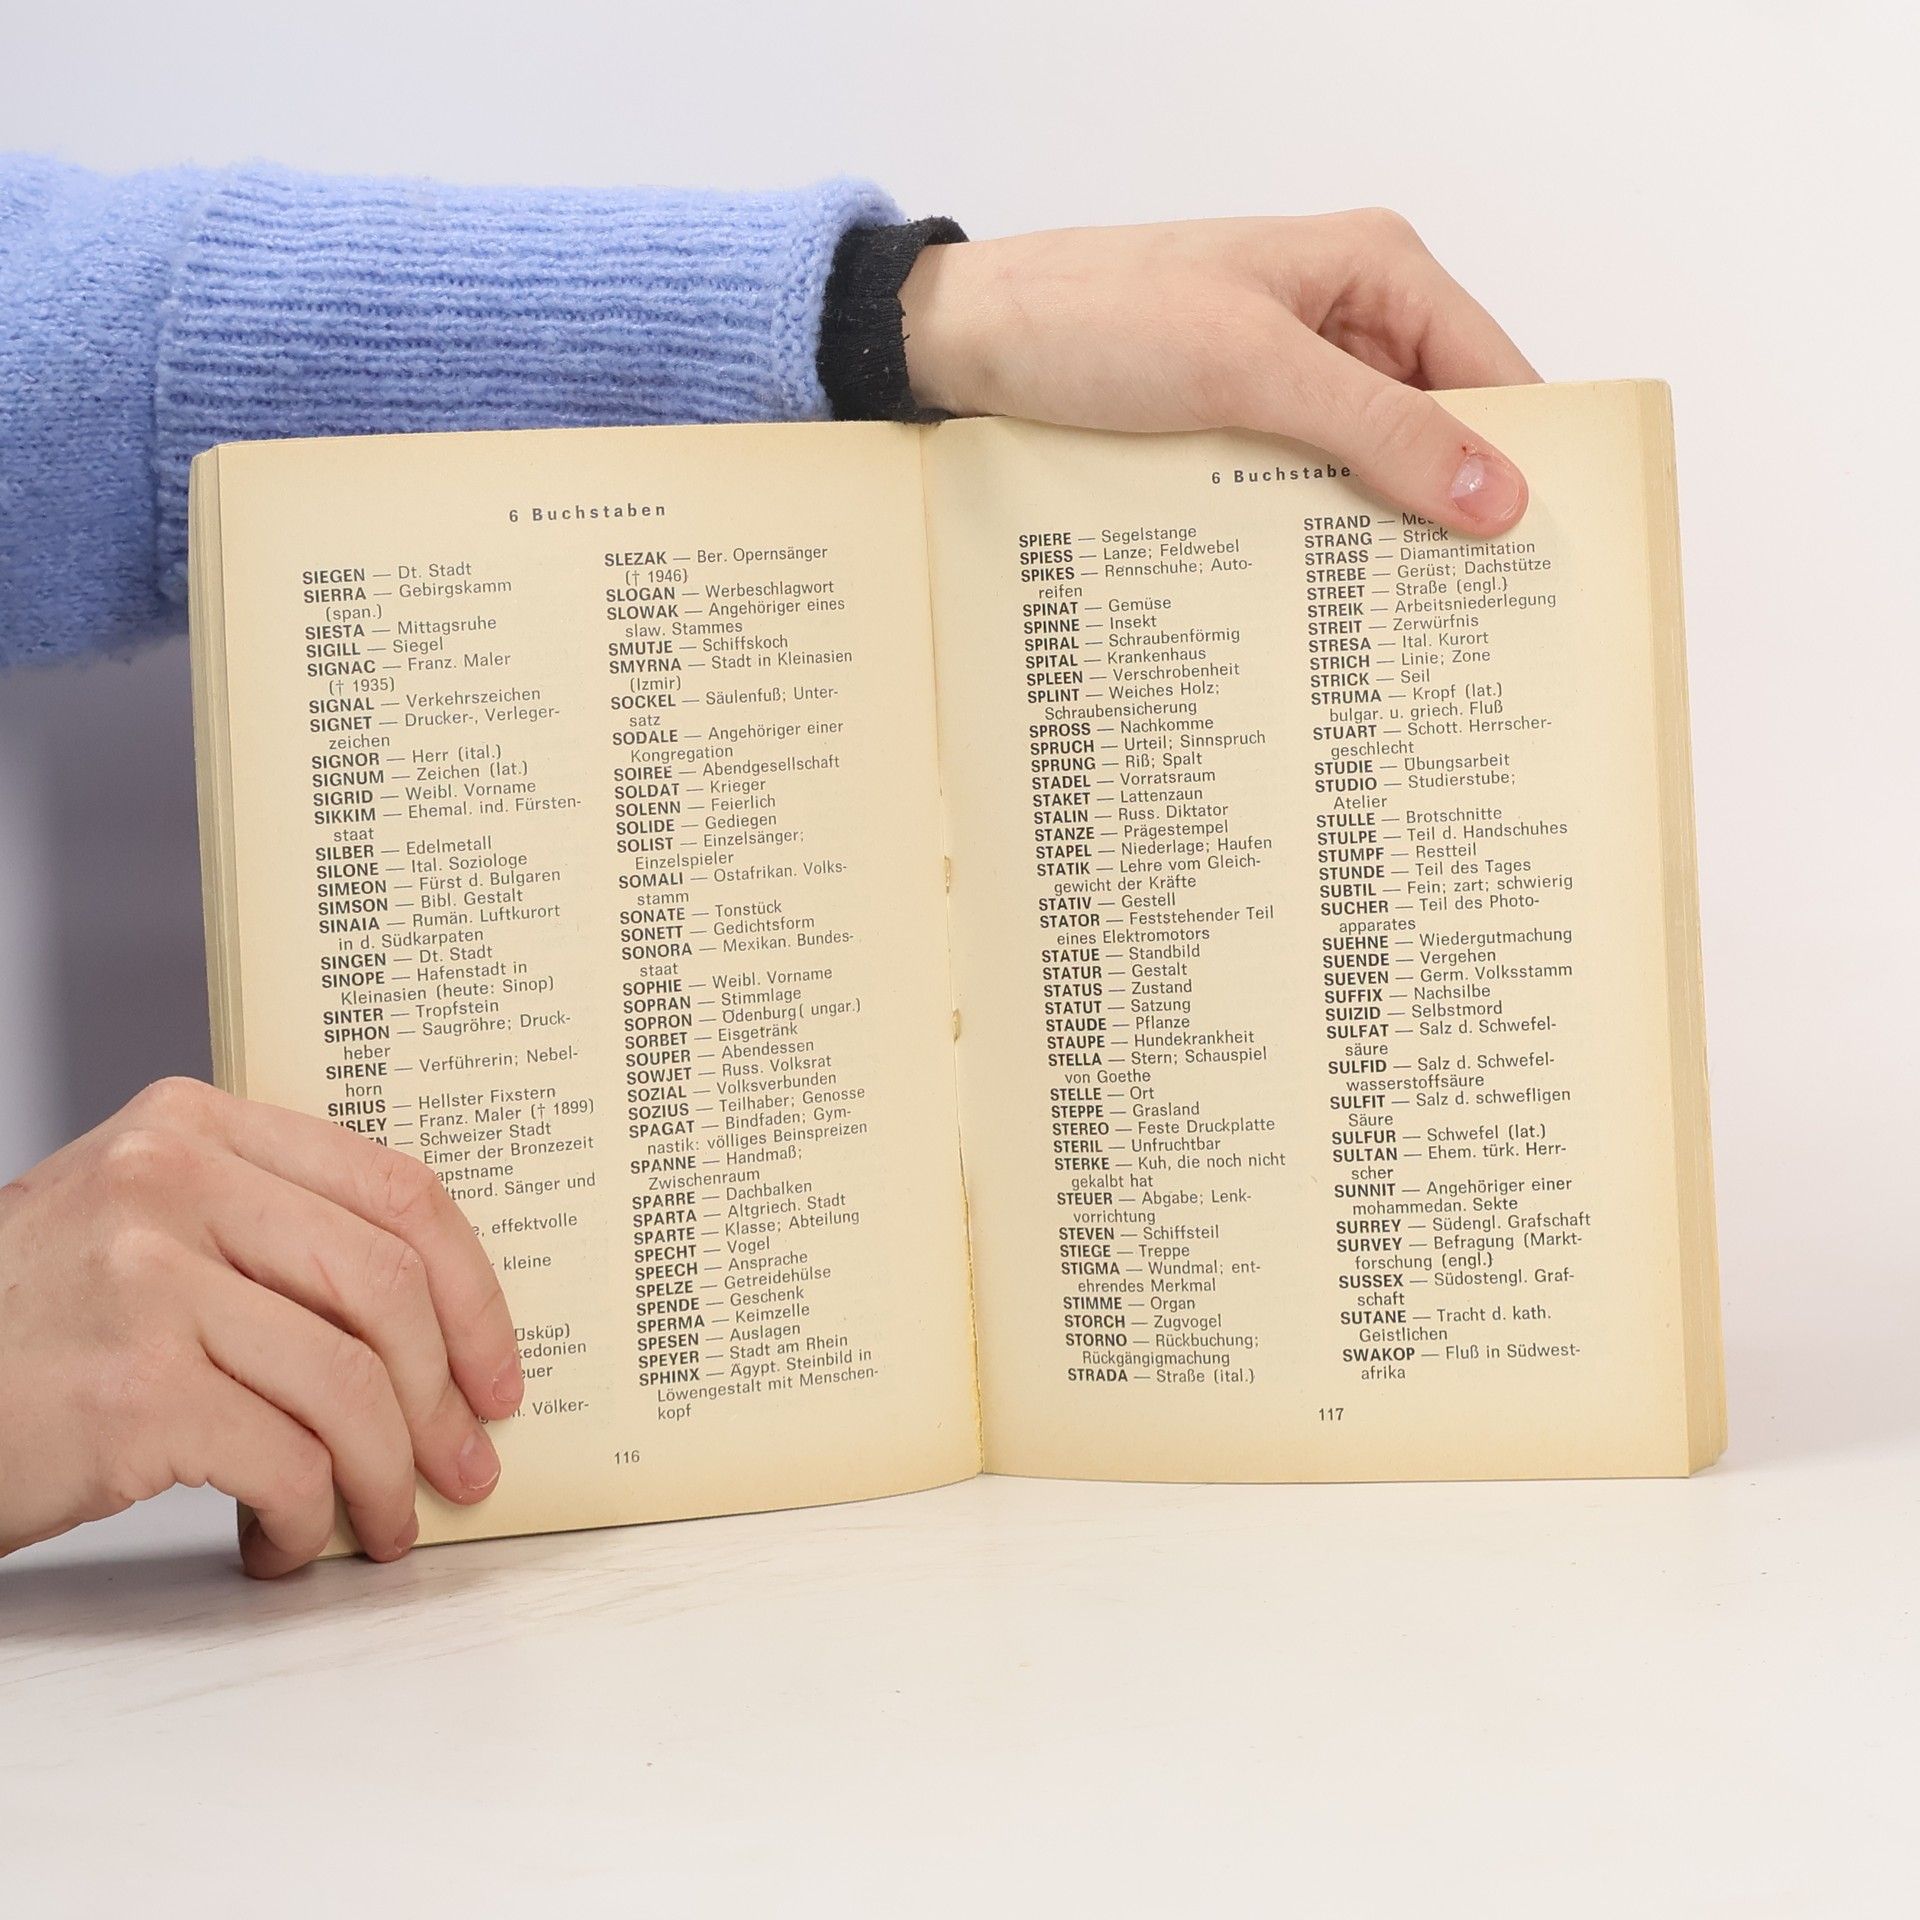 6 Buchstaben
SIEGEN — Dt. Stadt
SIERRA — Gebirgskamm
(span.)
SIESTA — Mittagsruhe
SIGILL — Siegel
SIGNAC — Franz. Maler
(† 1935)
SIGNAL — Verkehrszeichen
SIGNET — Drucker-, Verleger-
zeichen
SIGNOR — Herr (ital.)
SIGNUM — Zeichen (lat.)
SIGRID — Weibl. Vorname
SIKKIM — Ehemal. ind. Fürsten-
staat
SILBER — Edelmetall
SILONE — Ital. Soziologe
SIMEON — Fürst d. Bulgaren
SIMSON — Bibl. Gestalt
SINAIA — Rumän. Luftkurort
in d. Südkarpaten
SINGEN — Dt. Stadt
SINOPE — Hafenstadt in
Kleinasien (heute: Sinop)
SINTER — Tropfstein
SIPHON — Saugröhre; Druck-
heber
SIRENE — Verführerin; Nebel-
horn
SIRIUS — Hellster Fixstern
— Franz. Maler († 1899)
— Schweizer Stadt
Eimer der Bronzezeit
Sänger und
effektvolle
kleine
Völker-
116
SLEZAK — Ber. Opernsänger
(† 1946)
SLOGAN — Werbeschlagwort
SLOWAK — Angehöriger eines
slaw. Stammes
SMUTJE — Schiffskoch
SMYRNA — Stadt in Kleinasien
(Izmir)
SOCKEL — Säulenfuß; Unter-
satz
SODALE — Angehöriger einer
Kongregation
SOIREE — Abendgesellschaft
SOLDAT — Krieger
SOLENN — Feierlich
SOLIDE — Gediegen
SOLIST — Einzelsänger;
Einzelspieler
SOMALI — Ostafrikan. Volks-
stamm
SONATE — Tonstück
SONETT — Gedichtsform
SONORA — Mexikan. Bundes-
staat
SOPHIE — Weibl. Vorname
SOPRAN — Stimmlage
SOPRON — Ödenburg( ungar.)
SORBET — Eisgetränk
SOUPER — Abendessen
SOWJET — Russ. Volksrat
SOZIAL — Volksverbunden
SOZIUS — Teilhaber; Genosse
SPAGAT — Bindfaden; Gym-
nastik: völliges Beinspreizen
SPANNE — Handmaß;
Zwischenraum
SPARRE — Dachbalken
SPARTA — Altgriech. Stadt
SPARTE — Klasse; Abteilung
SPECHT — Vogel
SPEECH — Ansprache
SPELZE — Getreidehülse
SPENDE — Geschenk
SPERMA — Keimzelle
SPESEN — Auslagen
SPEYER — Stadt am Rhein
SPHINX — Ägypt. Steinbild in
Löwengestalt mit Menschen-
kopf
6
SPIERE — Segelstange
SPIESS — Lanze; Feldwebel
SPIKES — Rennschuhe; Auto-
reifen
SPINAT — Gemüse
SPINNE — Insekt
SPIRAL — Schraubenförmig
SPITAL — Krankenhaus
SPLEEN — Verschrobenheit
SPLINT — Weiches Holz;
Schraubensicherung
SPROSS — Nachkomme
SPRUCH — Urteil; Sinnspruch
SPRUNG — Riß; Spalt
STADEL — Vorratsraum
STAKET — Lattenzaun
STALIN — Russ. Diktator
STANZE — Prägestempel
STAPEL — Niederlage; Haufen
STATIK — Lehre vom Gleich-
gewicht der Kräfte
STATIV — Gestell
STATOR — Feststehender Teil
eines Elektromotors
STATUE — Standbild
STATUR — Gestalt
STATUS — Zustand
STATUT — Satzung
STAUDE — Pflanze
STAUPE — Hundekrankheit
STELLA — Stern; Schauspiel
von Goethe
STELLE — Ort
STEPPE — Grasland
STEREO — Feste Druckplatte
STERIL — Unfruchtbar
STERKE — Kuh, die noch nicht
gekalbt hat
STEUER — Abgabe; Lenk-
vorrichtung
STEVEN — Schiffsteil
STIEGE — Treppe
STIGMA — Wundmal; ent-
ehrendes Merkmal
STIMME — Organ
STORCH — Zugvogel
STORNO — Rückbuchung;
Rückgängigmachung
STRADA — Straße (ital.)
STRAND —
STRANG — Strick
STRASS — Diamantimitation
STREBE — Gerüst; Dachstütze
STREET — Straße (engl.)
STREIK — Arbeitsniederlegung
STREIT — Zerwürfnis
STRESA — Ital. Kurort
STRICH — Linie; Zone
STRICK — Seil
STRUMA — Kropf (lat.)
bulgar. u. griech. Fluß
STUART — Schott. Herrscher-
geschlecht
STUDIE — Übungsarbeit
STUDIO — Studierstube;
Atelier
STULLE — Brotschnitte
STULPE — Teil d. Handschuhes
STUMPF — Restteil
STUNDE — Teil des Tages
SUBTIL — Fein; zart; schwierig
SUCHER — Teil des Photo-
apparates
SUEHNE — Wiedergutmachung
SUENDE — Vergehen
SUEVEN — Germ. Volksstamm
SUFFIX — Nachsilbe
SUIZID — Selbstmord
SULFAT — Salz d. Schwefel-
säure
SULFID — Salz d. Schwefel-
wasserstoffsäure
SULFIT — Salz d. schwefligen
Säure
SULFUR — Schwefel (lat.)
SULTAN — Ehem. türk. Herr-
scher
SUNNIT — Angehöriger einer
mohammedan. Sekte
SURREY — Südengl. Grafschaft
SURVEY — Befragung (Markt-
forschung (engl.)
SUSSEX — Südostengl. Graf-
schaft
SUTANE — Tracht d. kath.
Geistlichen
SWAKOP — Fluß in Südwest-
afrika
117